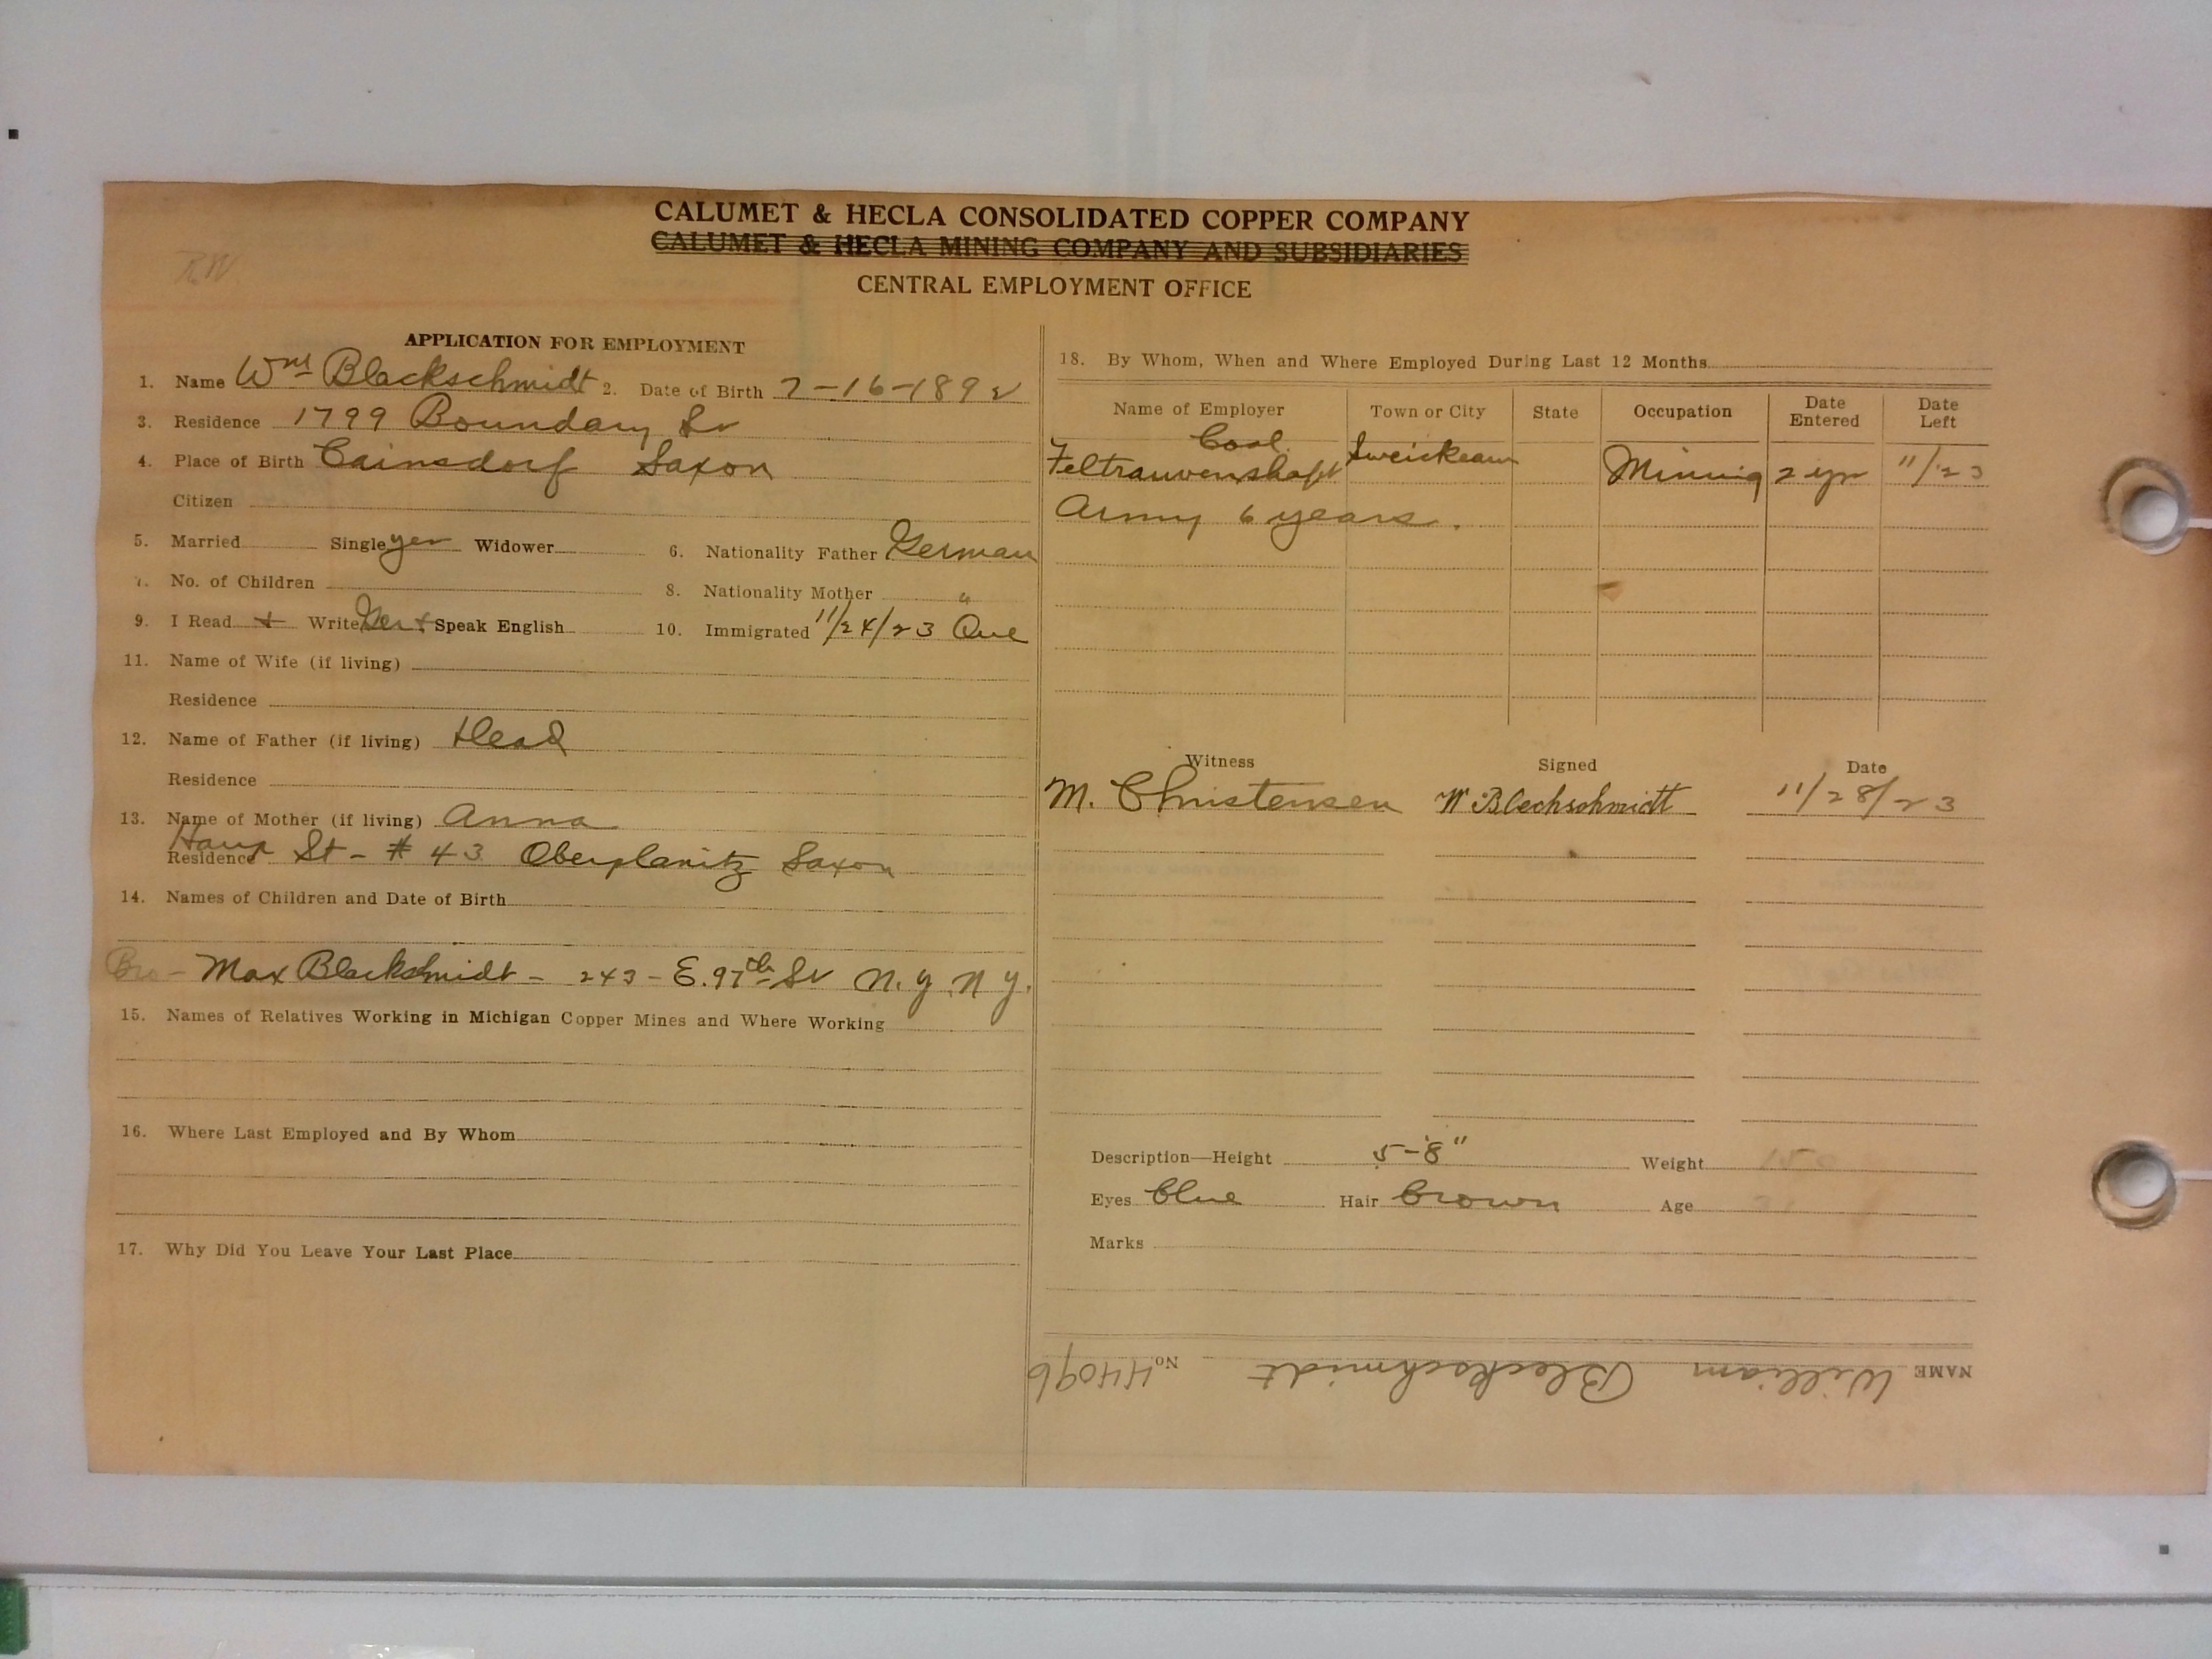 CALUMET & HECLA CONSOLIDATED COPPER COMPANY
CALUMET & HECLA MINING COMPANY AND SUBSIDIARIES
CENTRAL EMPLOYMENT OFFICE
RW
APPLICATION FOR EMPLOYMENT
1. Name Wm Blackschmidt 2. Date of Birth 7-16-1892
3. Residence 1799 Boundary St
4. Place of Birth Cainsdorf Saxon
Citizen
5. Married Single yes Widower 6. Nationality Father German
7. No. of Children 8. Nationality Mother "
9. I Read + Write Ger + Speak English 10. Immigrated 11/24/23 Que
11. Name of Wife (if living)
Residence
12. Name of Father (if living) Dead
Residence
13. Name of Mother (if living) Anna
Residence Haup St - # 43 Oberplanitz Saxon
14. Names of Children and Date of Birth
Bro - Max Blackshmidt - 243 - E. 97th St N.Y. N Y.
15. Names of Relatives Working in Michigan Copper Mines and Where Working
16. Where Last Employed and By Whom
17. Why Did You Leave Your Last Place
18. By Whom, When and Where Employed During Last 12 Months
Name of Employer Town or City State Occupation Date Entered Date Left
Coal
Feltrauvenshaft Sweickeam Mining 2 yr 11/23
Army 6 years.
Witness Signed Date
M. Christensen W. Blechschmidt 11/28/23
Description—Height 5-8" Weight 150
Eyes blue Hair brown Age
Marks
NAME William Bleckschmidt No. 44096